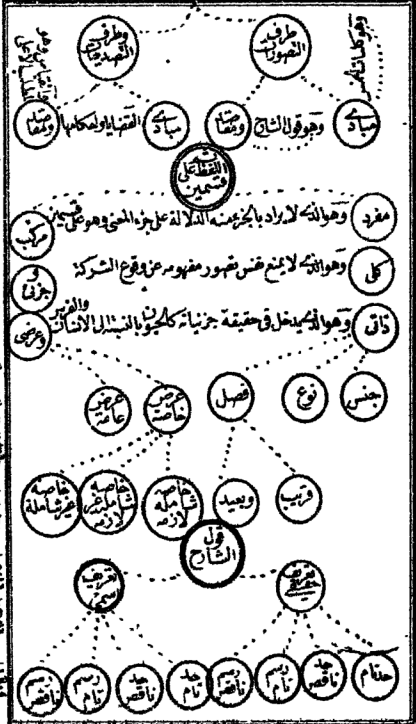 طرف التصورات
وطرف التصديقات
وهو كليات الخمس
مبادى
وهو قول الشارح
ومقاصد
مبادى
القضايا واحكامها
ومقاصد
ثم اللفظ على قسمين
مفرد
وهو الذى لا يراد بالجزء منه الدلالة على جزء المعنى وهو على قسمين
مركب
كلى
وهو الذى لا يمنع نفس تصور مفهومه عن وقوع الشركة
و جزئى
ذاتى
وهو الذى يدخل فى حقيقة جزئياته كالحيوان بالنسبة الى الانسان والفرس
وعرضى
جنس
نوع
فصل
عرض خاصة
عرض عامة
قريب
وبعيد
خاصة شاملة لازمة
خاصة شاملة غير لازمة
خاصة غير شاملة
قول الشارح
تعريف حقيقى
تعريف اسمى
حد تام
حد ناقص
رسم تام
رسم ناقص
حد تام
حد ناقص
رسم تام
رسم ناقص